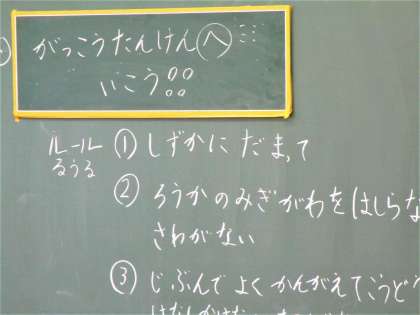 がっこうたんけんへ
いこう!!
ルール ① しずかに だまって
るうる
② ろうかのみぎがわを はしらな
さわがない
③ じぶんで よく かんがえてこうど